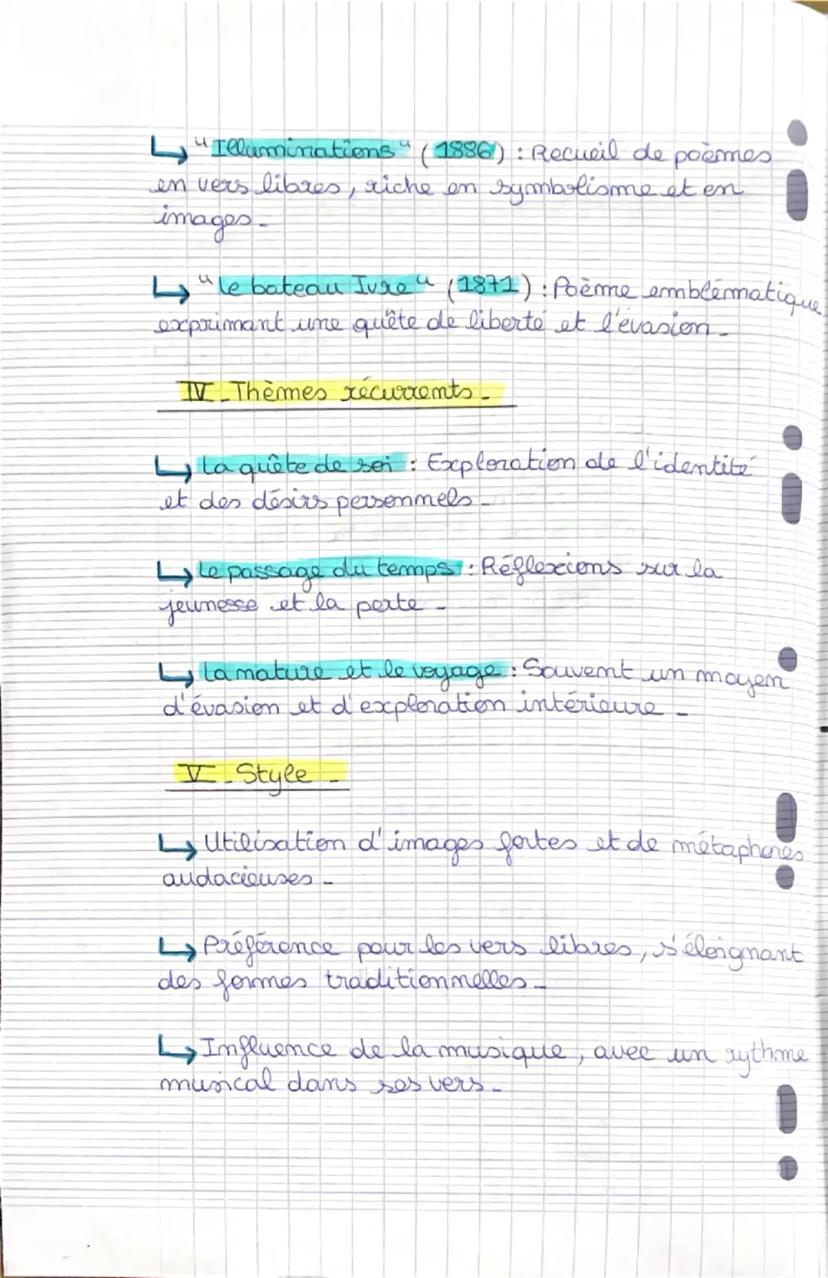 ↳ "Illuminations" (1886) : Recueil de poèmes
en vers libres, riche en symbolisme et en
images.
↳ "Le bateau Ivre" (1871) : Poème emblématique
exprimant une quête de liberté et l'évasion.
IV. Thèmes récurrents.
↳ La quête de soi : Exploration de l'identité
et des désirs personnels.
↳ Le passage du temps : Réflexions sur la
jeunesse et la perte.
↳ La nature et le voyage : Souvent un moyen
d'évasion et d'exploration intérieure.
V. Style.
↳ Utilisation d'images fortes et de métaphores
audacieuses.
↳ Préférence pour les vers libres, s'éloignant
des formes traditionnelles.
↳ Influence de la musique, avec un rythme
musical dans ses vers.